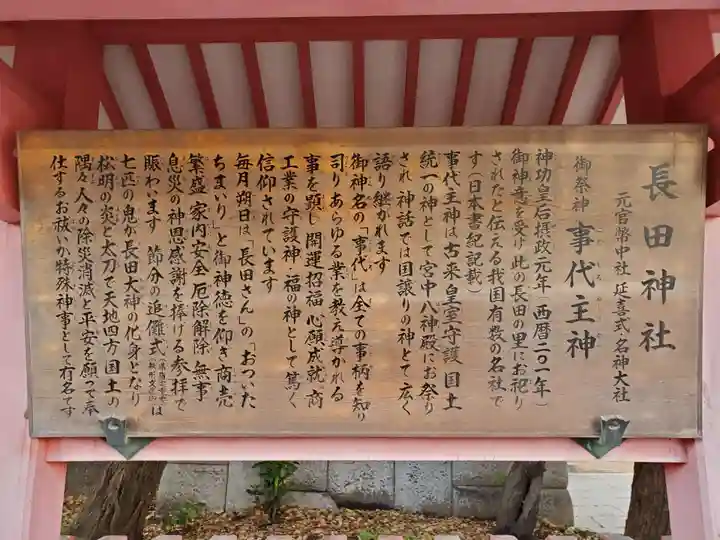 長田神社
元官幣中社 延喜式名神大社
御祭神 事代主神
神功皇后摂政元年(西暦二〇一年)
御神意を受け此の長田の里にお祀り
されたと伝える我国有数の名社で
す(日本書紀記載)
事代主神は古来皇室守護・国土
統一の神として宮中八神殿にお祭り
され 神話では国譲りの神とて広く
語り継がれます
御神名の「事代」は全ての事柄を知り
「司りあらゆる業を教え導かれる
事を顕し 開運招福 心願成就 商
工業の守護神・福の神として篤く
信仰されています
毎月朔日は「長田さん」の「おついた
ちまいり」と御神徳を仰ぎ商売
繁盛 家内安全 厄除解除 無事
息災の神恩感謝を捧げる参拝で
賑わいます 節分の追儺式は
七匹の鬼が長田大神の化身となり
松明の炎と太刀で天地四方国土の
隅々人々の除災消滅と平安を願って奉
仕するお祓いが特殊神事として有名です